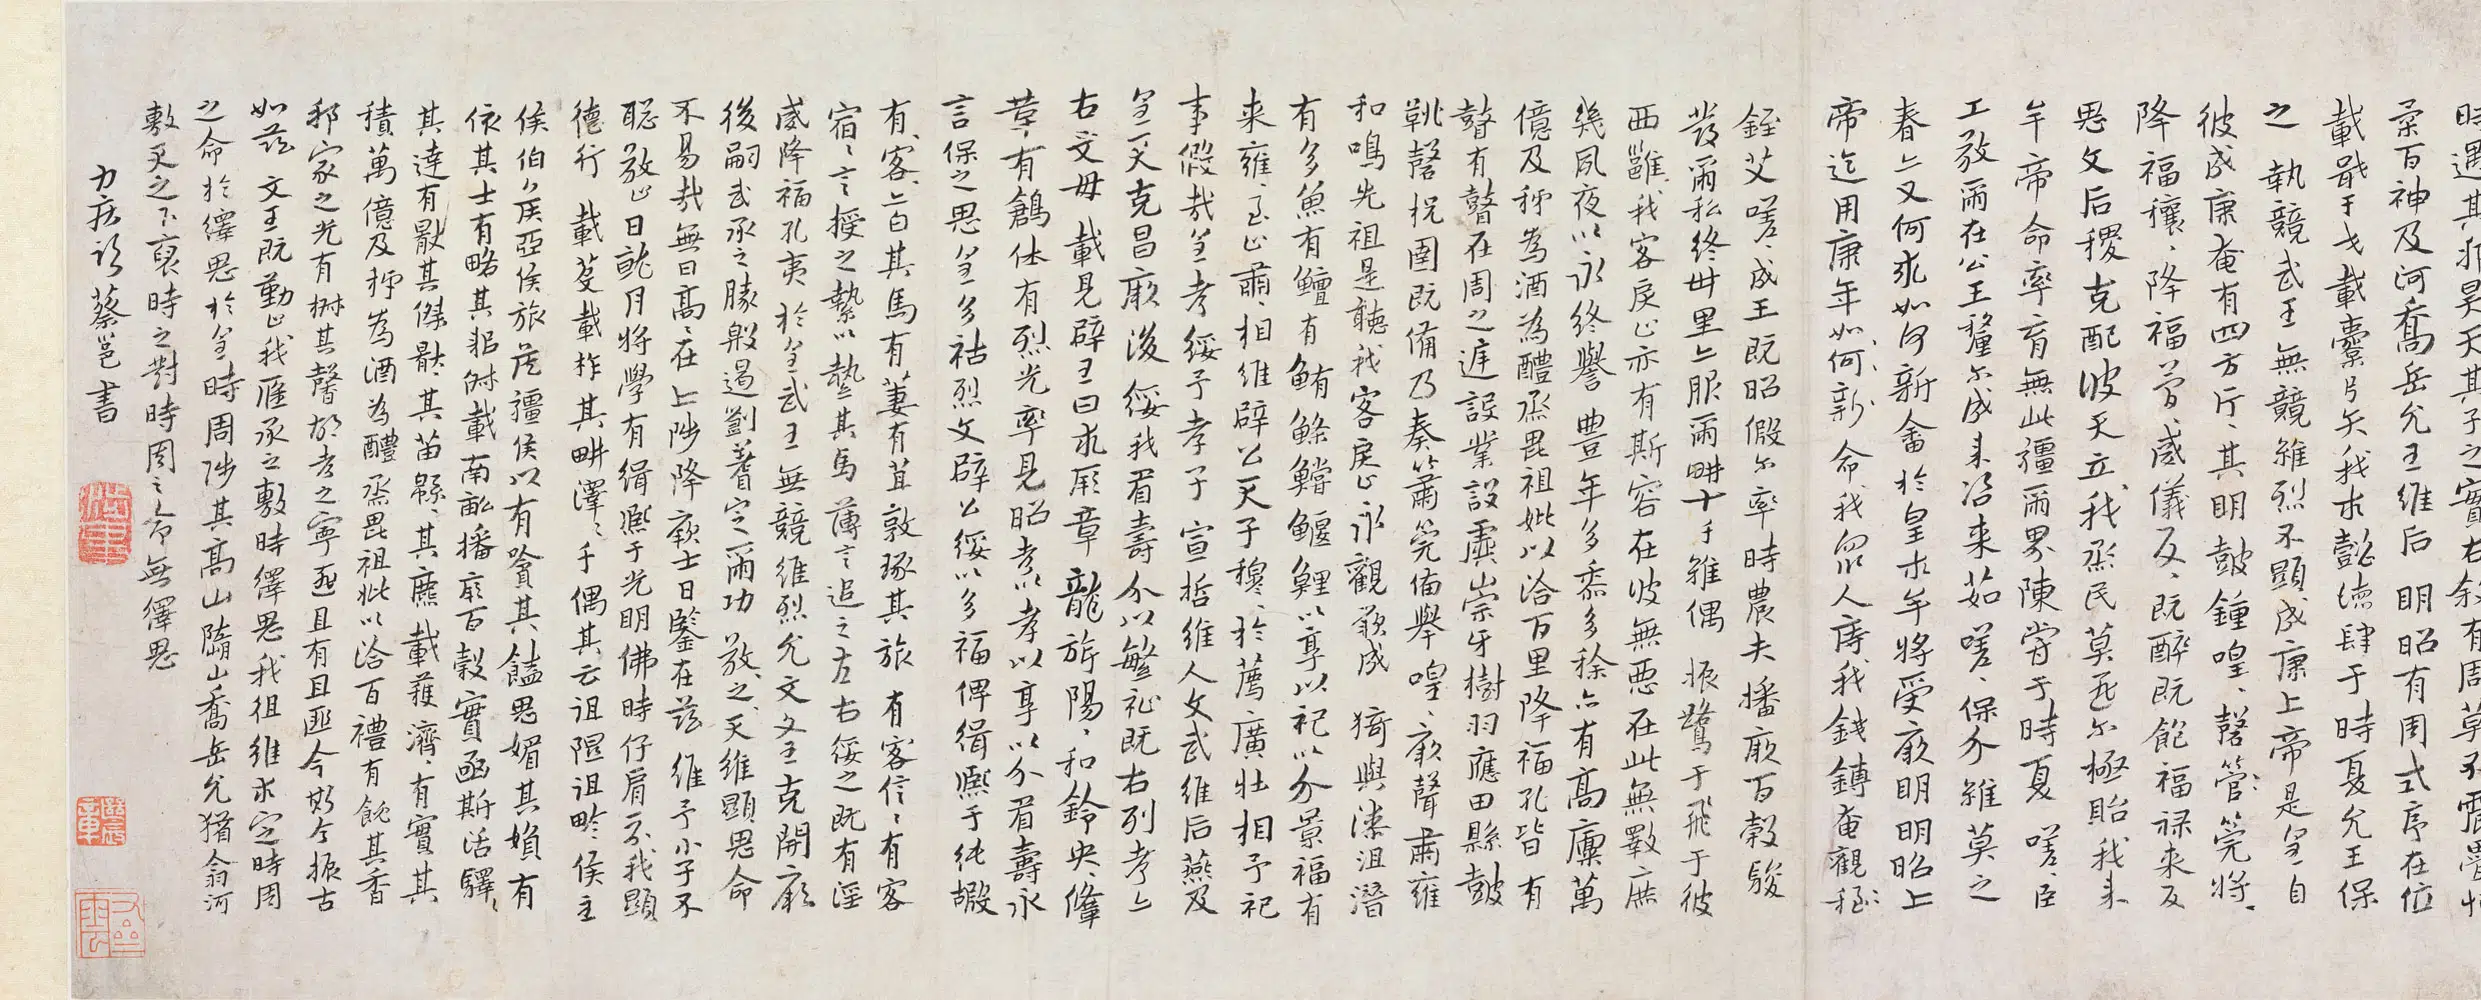 時邁其邦昊天其子之實右敘有周莫不震疊懷
柔百神及河喬岳允王維后 明昭有周式序在位
載戢干戈載櫜弓矢我求懿德肆于時夏允王保
之 執競武王無競維烈不顯成康上帝是皇自
彼成康奄有四方斤〻其明鼓鍾喤〻磬管〻筦將〻
降福穰〻降福簡〻威儀反〻既醉既飽福祿來反
思文后稷克配彼天立我烝民莫匪尔極貽我来
牟帝命率育無此疆爾界陳常于時夏 嗟〻臣
工敬爾在公王釐尔成来咨来茹嗟〻保介維莫之
春亦又何求如何新畬於皇来牟將受厥明明昭上
帝迄用康年如何新命我眾人庤我錢鎛奄觀銍
銍艾嗟〻成王既昭假尔率時農夫播厥百穀駿
發爾私終卅里亦服爾畊十千維偶 振鷺于飛于彼
西雝我客戾止亦有斯容在彼無惡在此無斁庶
幾夙夜以永終譽 豐年多黍多稌亦有高廩萬
億及秭為酒為醴烝畀祖妣以洽百里降福孔皆 有
瞽有瞽在周之庭設業設虡崇牙樹羽應田縣鼓
鞉磬柷圉既備乃奏簫筦備舉喤〻厥聲肅雍
和鳴先祖是聽我客戾止永觀厥成 猗與漆沮潛
有多魚有鱣有鮪鰷鱨鰋鯉以享以祀以介景福有
来雍〻至止肅〻相維辟公天子穆〻於薦廣牡相予祀
事假哉皇考綏予孝子 宣哲維人文武維后燕及
皇天克昌厥後綏我眉壽介以繁祉既右列考亦
右文母 載見辟王曰求厥章 龍旂陽〻和鈴央〻鞗
革有鶬休有烈光率見昭考以孝以享以介眉壽永
言保之思皇多祜烈文辟公綏以多福俾緝熙于純嘏
有〻客〻亦白其馬有萋有苴敦琢其旅 有客信〻有客
宿〻言授之縶以縶其馬 薄言追之左右綏之既有淫
威降福孔夷 於皇武王無競維烈允文文王克開厥
後嗣武承之勝殷遏劉耆定爾功 敬〻之〻天維顯思命
不易哉無曰高〻在上陟降厥士日鑒在茲 維予小子不
聰敬止日就月將學有緝熙于光明佛時仔肩示我顯
德行 載芟載柞其畊澤〻千偶其云徂隰徂畛侯主
侯伯侯亞侯旅侯彊侯以有嗿其饁思媚其婦有
依其士有略其耜俶載南畝播厥百穀實函斯活驛〻
其達有厭其傑厭〻其苗緜〻其麃載穫濟〻有實其
積萬億及秭為酒為醴烝畀祖妣以洽百禮有飶其香
邦家之光有椒其馨胡考之寧匪且有且匪今斯今振古
如茲 文王既勤止我應承之敷時繹思我徂維求定時周
之命於繹思於皇時周陟其高山隨山喬岳允猶翕河
敷天之下裒時之對時周之命無繹思
力疾 蔡邕書